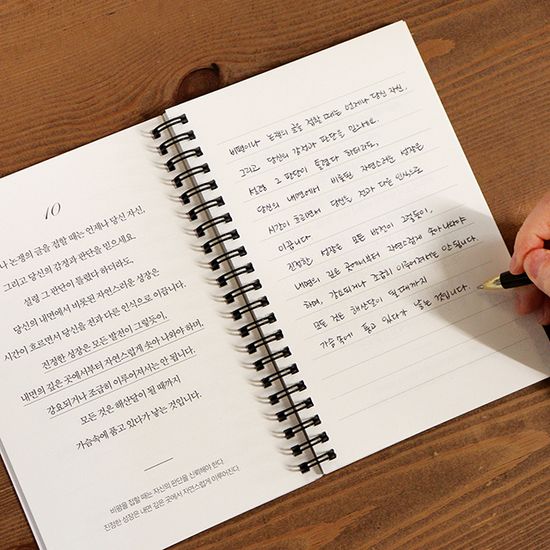 10
나 논쟁의 글을 접할 때는 언제나 당신 자신,
그리고 당신의 감정과 판단을 믿으세요.
설령 그 판단이 틀렸다 하더라도,
당신의 내면에서 비롯된 자연스러운 성장은
시간이 흐르면서 당신을 전과 다른 인식으로 이끕니다.
진정한 성장은 모든 발전이 그렇듯이,
내면의 깊은 곳에서부터 자연스럽게 솟아 나와야 하며,
강요되거나 조급히 이루어져서는 안 됩니다.
모든 것은 해산달이 될 때까지
가슴속에 품고 있다가 낳는 것입니다.
비평을 접할 때는 자신의 판단을 신뢰해야 한다.
진정한 성장은 내면 깊은 곳에서 자연스럽게 이루어진다.
비평이나 논쟁의 글을 접할 때는 언제나 당신 자신,
그리고 당신의 감정과 판단을 믿으세요.
설령 그 판단이 틀렸다 하더라도,
당신의 내면에서 비롯된 자연스러운 성장은
시간이 흐르면서 당신을 전과 다른 인식으로
이끕니다.
진정한 성장은 모든 발전이 그렇듯이,
내면의 깊은 곳에서부터 자연스럽게 솟아 나와야
하며, 강요되거나 조급히 이루어져서는 안 됩니다.
모든 것은 해산달이 될 때까지
가슴 속에 품고 있다가 낳는 것입니다.